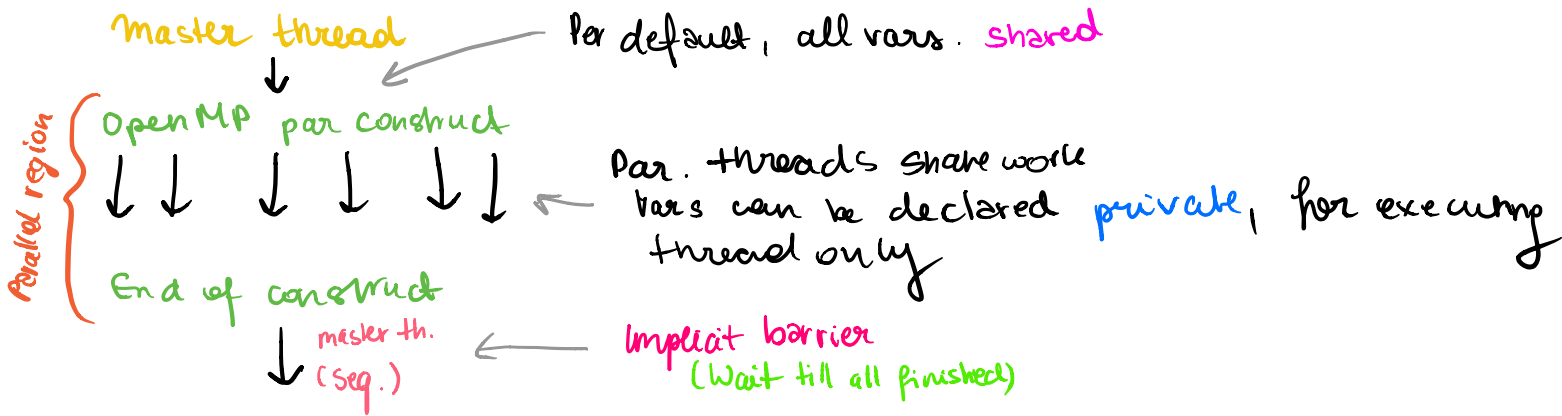 Master thread
Per default, all vars. shared
OpenMP par construct
Parallel region
Par. threads share work
Vars can be declared private, for executing
thread only
End of construct
master th.
(seq.)
Implicit barrier
(Wait till all finished)